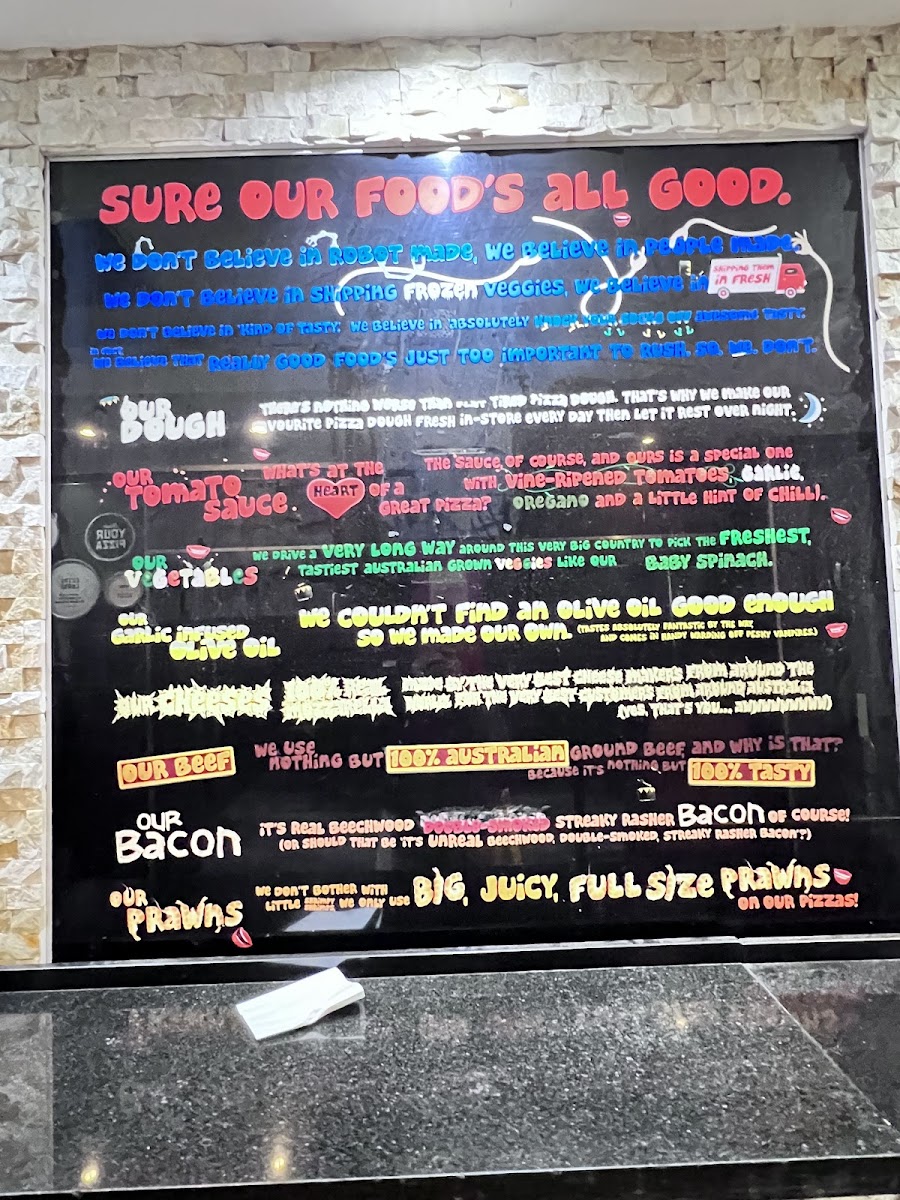 SURE OUR FOOD'S ALL GOOD.
WE DON'T BELIEVE IN ROBOT MADE, WE BELIEVE IN PEOPLE MADE.
WE DON'T BELIEVE IN SHIPPING FROZEN VEGGIES, WE BELIEVE IN SHIPPING THEM IN FRESH
WE DON'T BELIEVE IN 'KIND OF TASTY.' WE BELIEVE IN 'ABSOLUTELY AWESOME TASTY.'
WE BELIEVE THAT REALLY GOOD FOOD'S JUST TOO IMPORTANT TO RUSH. SO, WE, DON'T.
OUR DOUGH
THERE'S NOTHING WORSE THAN FLAT TIRED PIZZA DOUGH. THAT'S WHY WE MAKE OUR
VOURITE PIZZA DOUGH FRESH IN-STORE EVERY DAY THEN LET IT REST OVER NIGHT.
OUR TOMATO SAUCE.
WHAT'S AT THE HEART OF A GREAT PIZZA?
THE SAUCE OF COURSE, AND OURS IS A SPECIAL ONE
WITH VINE-RIPENED TOMATOES, GARLIC,
OREGANO AND A LITTLE HINT OF CHILLI.
YOUR
PIZZA
OUR VEGETABLES
WE DRIVE A VERY LONG WAY AROUND THIS VERY BIG COUNTRY TO PICK THE FRESHEST,
TASTIEST AUSTRALIAN GROWN VEGGIES LIKE OUR BABY SPINACH.
OUR GARLIC INFUSED OLIVE OIL
WE COULDN'T FIND AN OLIVE OIL GOOD ENOUGH
SO WE MADE OUR OWN. (TASTES ABSOLUTELY FANTASTIC BY THE WAY
AND COMES IN HANDY WARDING OFF PESKY VAMPIRES.)
OUR CHEESES
100% REAL MOZZARELLA
MADE BY THE VERY BEST CHEESE MAKERS FROM AROUND THE
WORLD, FOR THE VERY BEST CUSTOMERS FROM AROUND AUSTRALIA
(YES, THAT'S YOU...
OUR BEEF
WE USE NOTHING BUT 100% AUSTRALIAN GROUND BEEF, AND WHY IS THAT?
BECAUSE IT'S NOTHING BUT 100% TASTY
OUR BACON
IT'S REAL BEECHWOOD DOUBLE-SMOKED STREAKY RASHER BACON OF COURSE!
(OR SHOULD THAT BE IT'S UNREAL BEECHWOOD, DOUBLE-SMOKED, STREAKY RASHER BACON?)
OUR PRAWNS
WE DON'T BOTHER WITH
LITTLE WE ONLY USE BIG, JUICY, FULL SIZE PRAWNS
ON OUR PIZZAS!